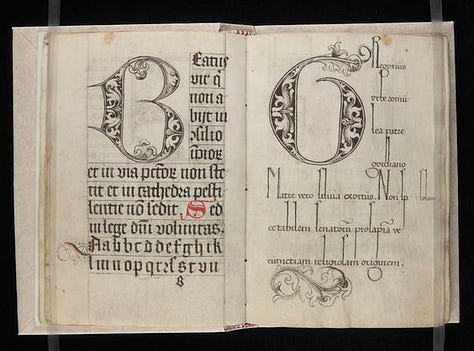 BEatus
vir q̄
non a
bijt in
ↄ̄silio
impior̄
et in via pctor̄ non ste
tit et in cathedra pesti
lentie nō sedit, Sed
in lege dn̄i voluntas.
Aabbcddefghik
lmnopqrſstvu
GRegorius
vrbe romu
lea patre
gordiano
Matre vero siluia exortus. Non sp solum
ectabilem senatorū prosapiā ve
rumetiam religiosam originem.